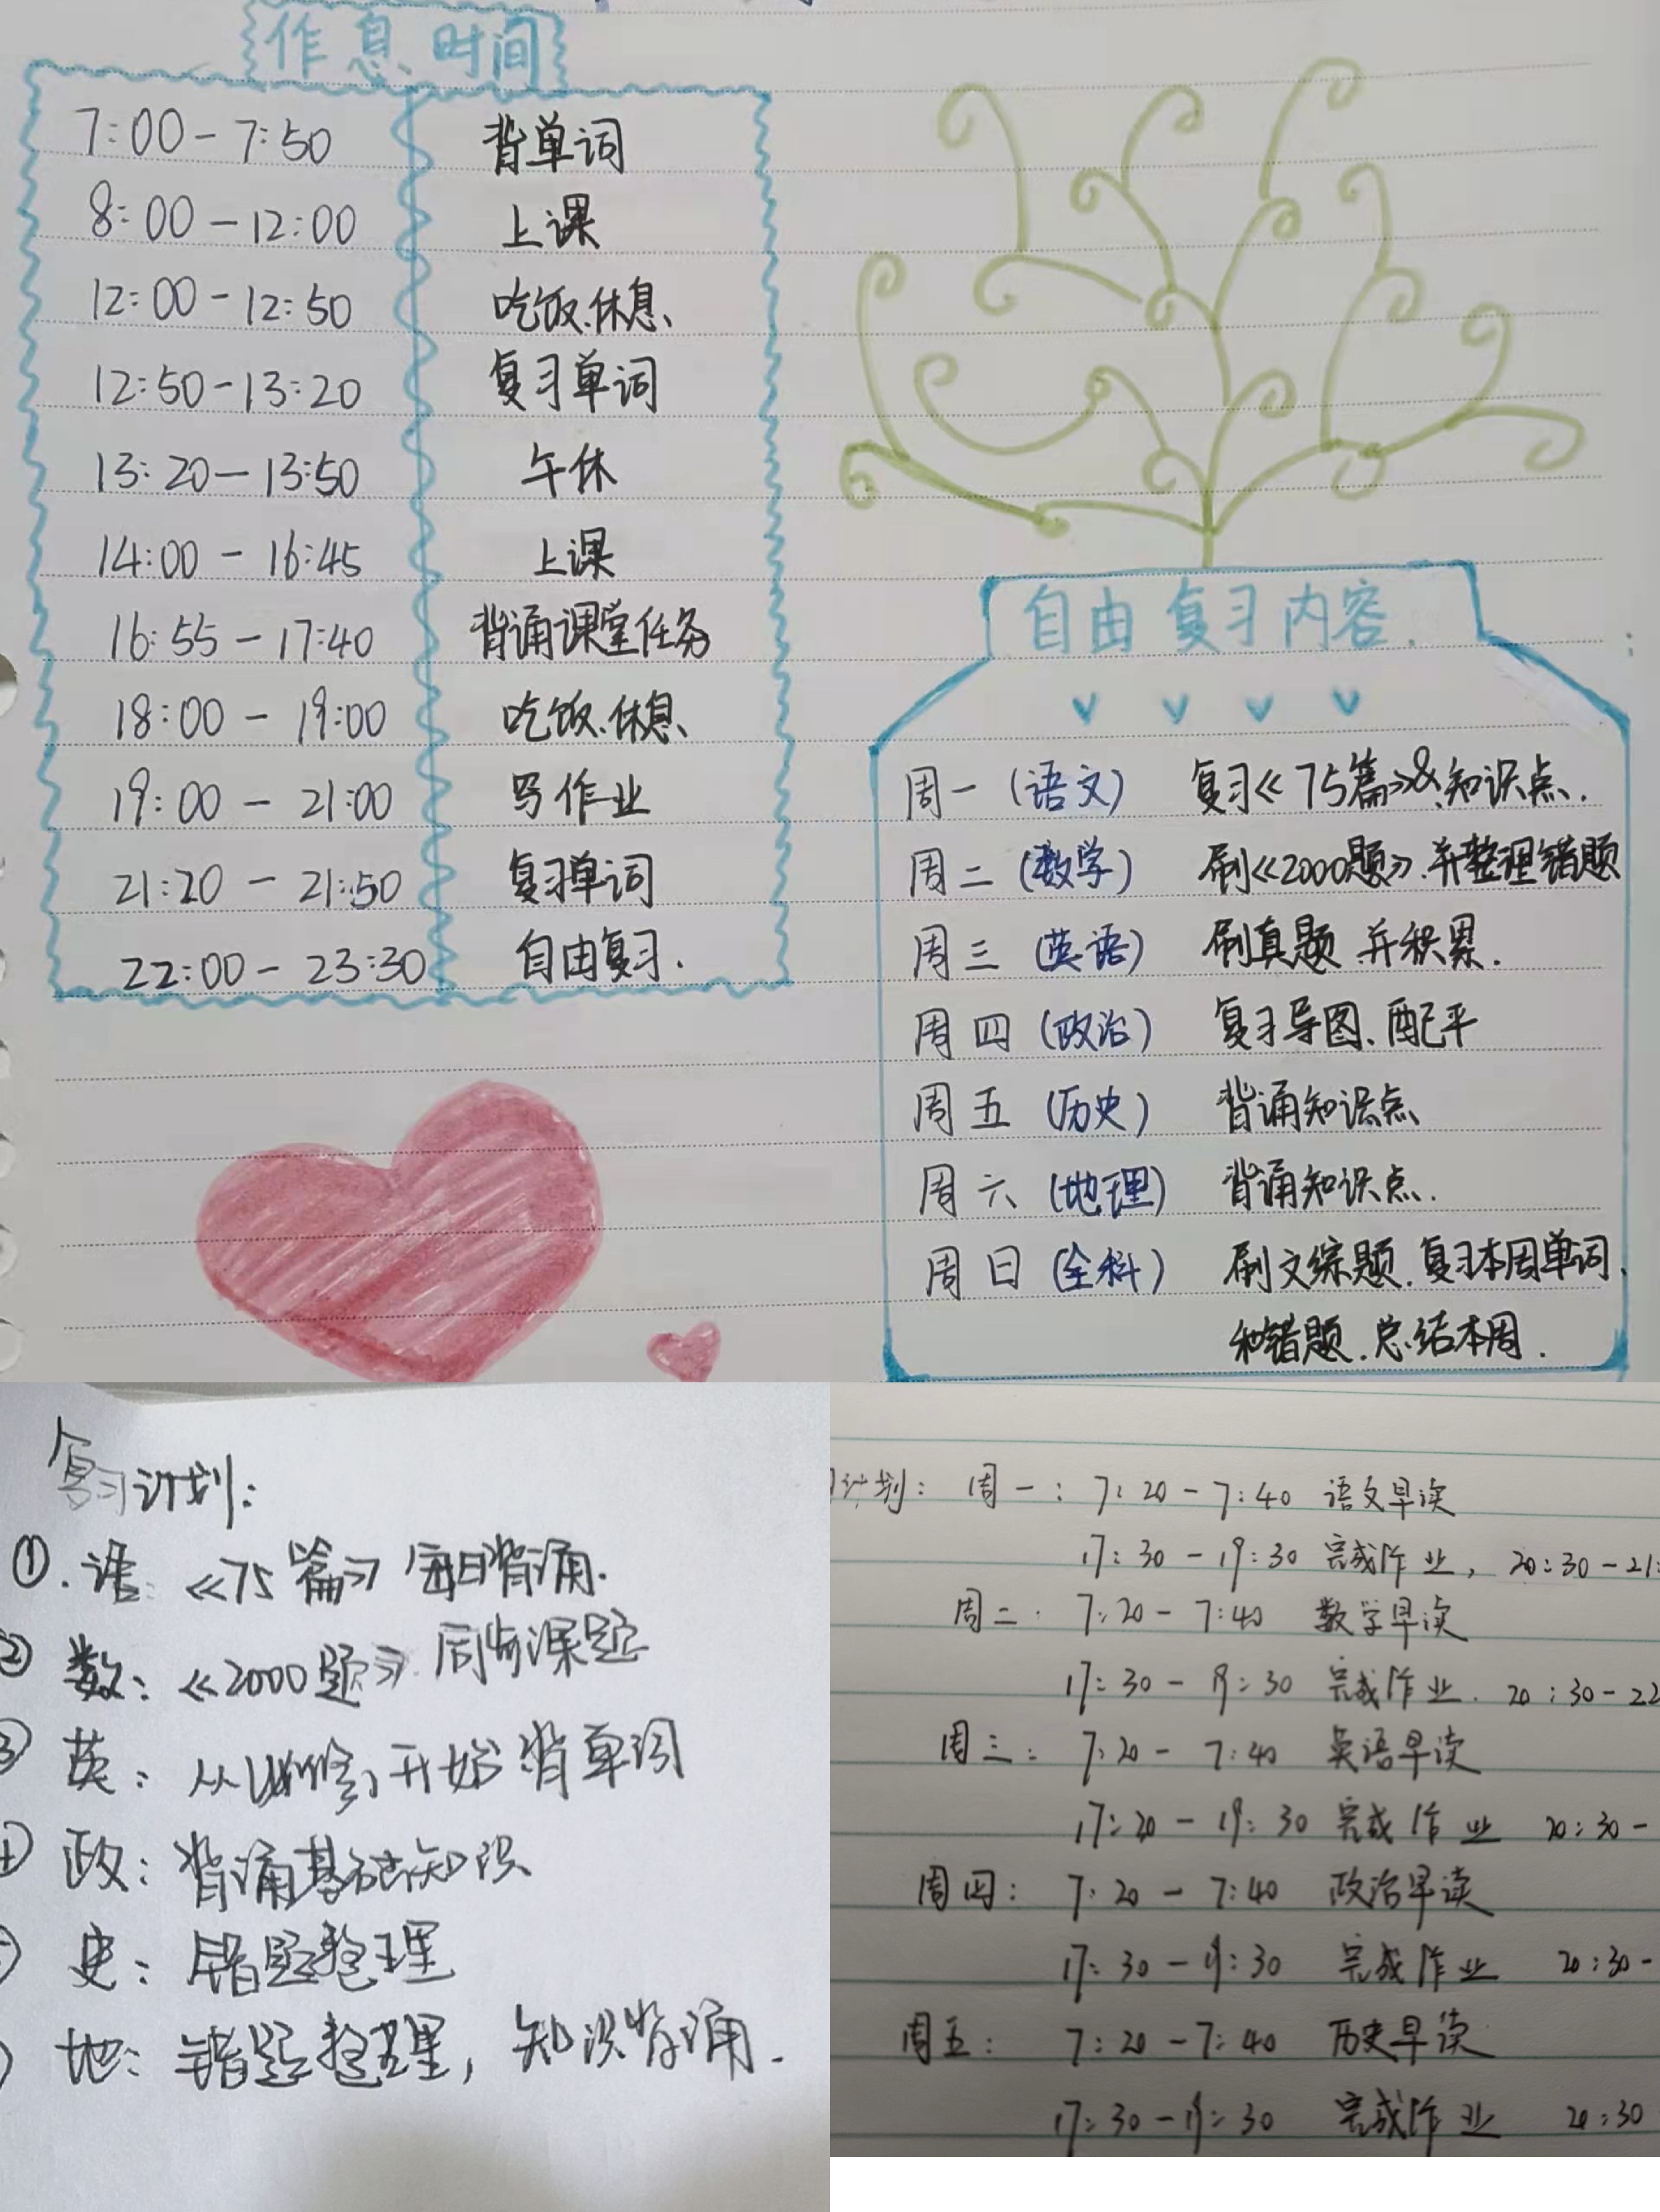 作息时间
7:00-7:50 背单词
8:00-12:00 上课
12:00-12:50 吃饭.休息、
12:50-13:20 复习单词
13:20-13:50 午休
14:00-16:45 上课
16:55-17:40 背诵课堂任务
18:00-19:00 吃饭.休息、
19:00-21:00 写作业
21:20-21:50 复习单词
22:00-23:30 自由复习.
自由复习内容.
周一(语文) 复习《75篇》&知识点.
周二(数学) 刷《2000题》.并整理错题
周三(英语) 刷真题 并积累.
周四(政治) 复习导图.配平
周五(历史) 背诵知识点
周六(地理) 背诵知识点.
周日(全科) 刷文综题.复习本周单词
和错题.总结本周.
复习计划:
①.语: 《75篇》每日背诵.
② 数: 《2000题》.同步课题
③ 英: 从 开始背单词
④ 政: 背诵基础知识
史: 错题整理
地: 错题整理, 知识背诵.
计划: 周一: 7:20-7:40 语文早读
17:30-19:30 完成作业, 20:30-21:
周二. 7:20-7:40 数学早读
17:30-19:30 完成作业. 20:30-22
周三: 7:20-7:40 英语早读
17:20-19:30 完成作业 20:30-
周四: 7:20-7:40 政治早读
17:30-19:30 完成作业 20:30-
周五: 7:20-7:40 历史早读
17:30-19:30 完成作业 20:30